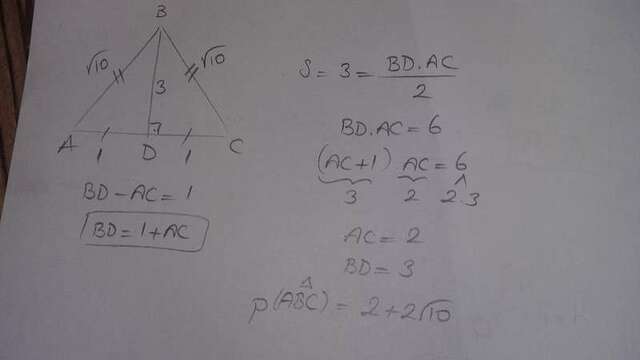 B
√10 √10
3
A 1 D 1 C
BD - AC = 1
BD = 1 + AC
S = 3 = BD.AC / 2
BD.AC = 6
(AC+1) AC = 6
3 2 2.3
AC = 2
BD = 3
P(ABC) = 2 + 2√10